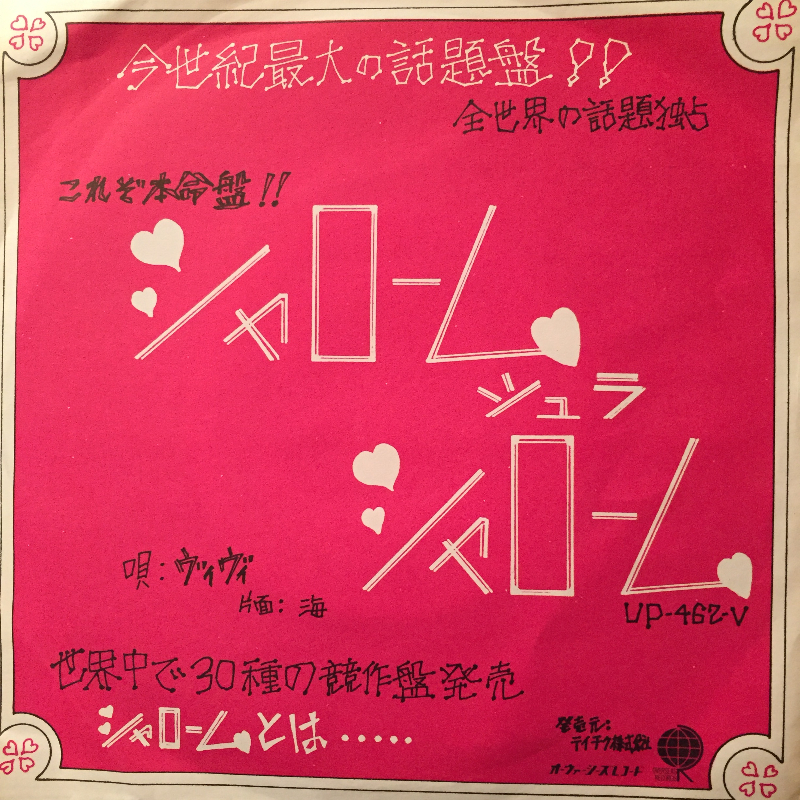 今世紀最大の話題盤!!
全世界の話題独占
これぞ本命盤!!
シャローム
シュラ
シャローム
唄:ヴィヴィ
片面:海
UP-467-V
世界中で30種の競作盤発売
シャロームとは・・・・・
発売元:
テイチク株式會社
オーヴァーシーズレコード